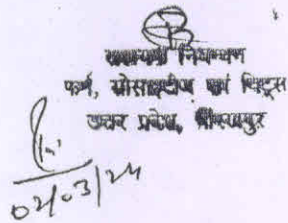 सहायक निबन्धक
फर्म, सोसाइटीज एवं चिट्स
उत्तर प्रदेश, गोरखपुर
02/03/24